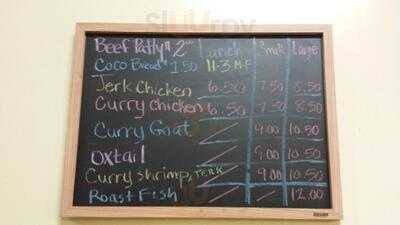 Beef Patty $2.00 Lunch Small Large
Coco Bread $1.50 11-3 M-F
Jerk Chicken 6.50 7.50 8.50
Curry Chicken 6.50 7.50 8.50
Curry Goat 9.00 10.50
Oxtail 9.00 10.50
Curry shrimp, Jerk 9.00 10.50
Roast Fish 12.00